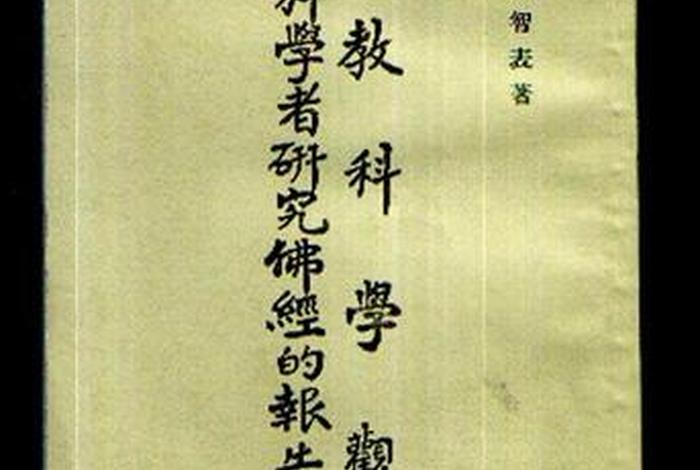 智表著
教科學觀
科學者研究佛經的報告